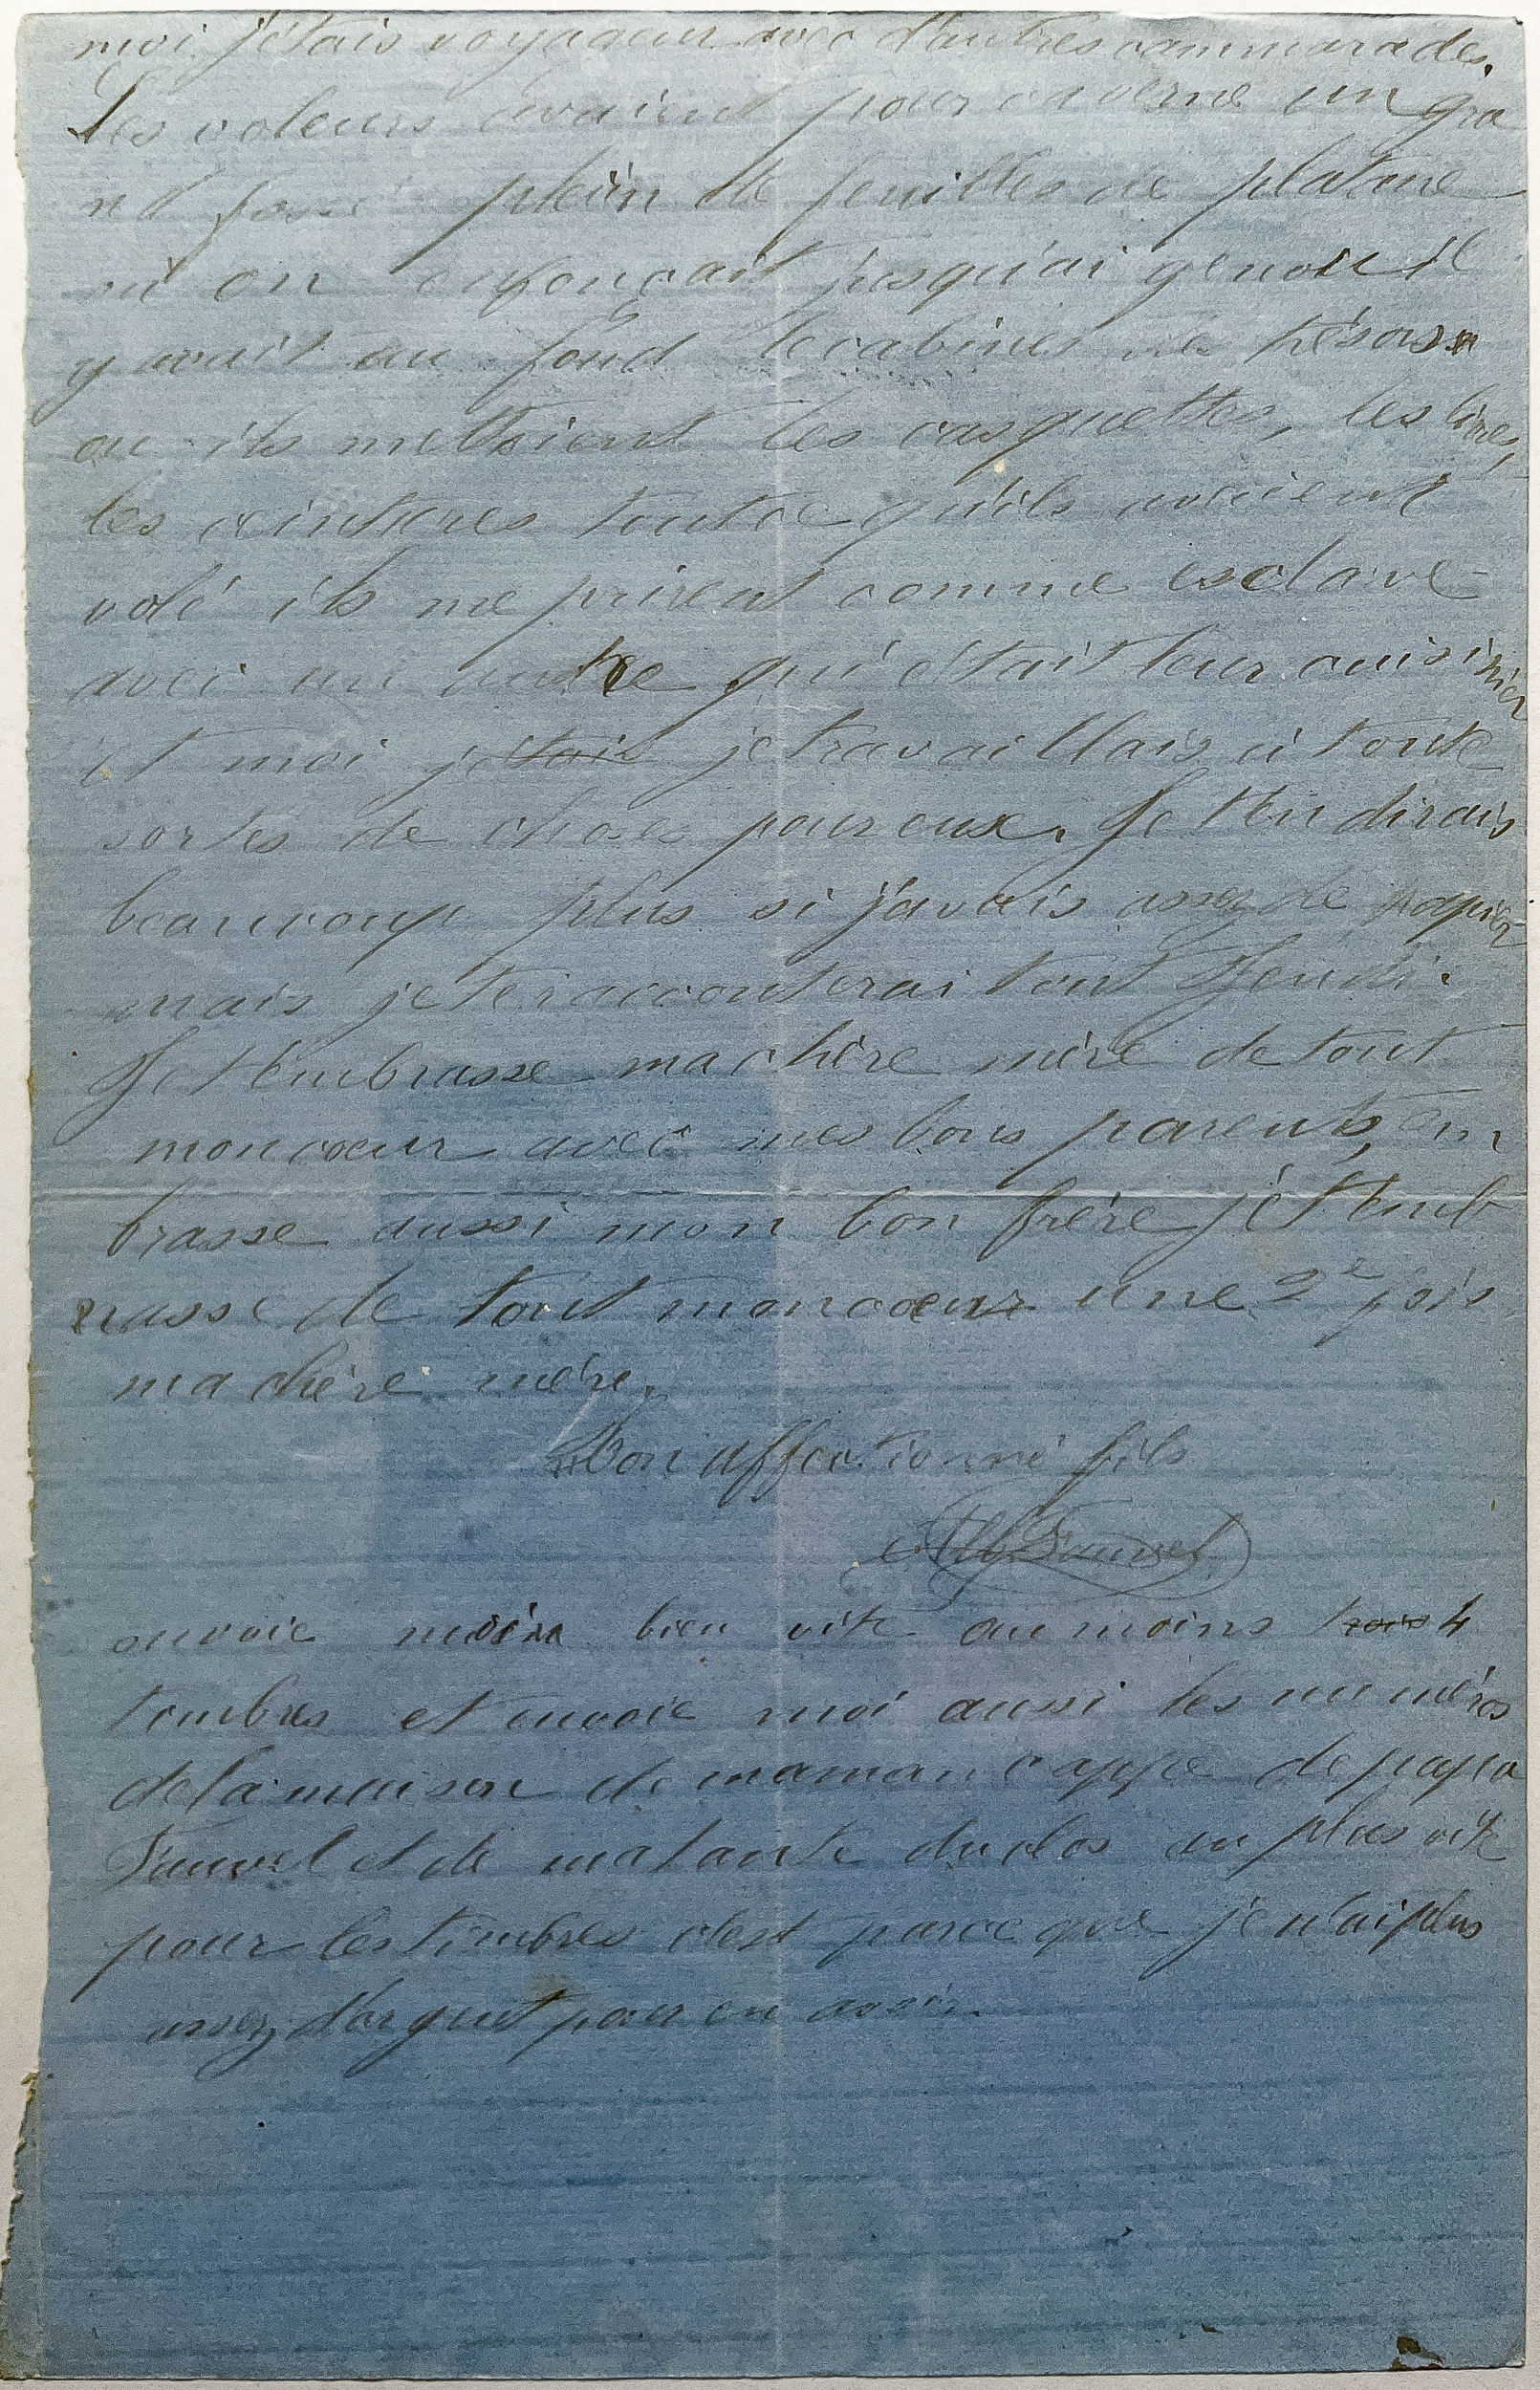 moi j'étais voyageur avec d'autres cammarades.
Les voleurs avaient pour caverne un gra
nd fossé plein de feuilles de platane
où on enfonçait jusqu'ai genoux il
y avait au fond le cabinet des trésors
ou ils mettaient les casquettes, les livres,
les ceintures toutce qu'ils avaient
volé ils me prirent comme esclave
avec un autre qui était leur cuisinier
et moi j'étais je travaillais à toute
sortes de choses pour eux. Je t'en dirais
beaucoup plus si j'avais assez de papier
mais je te raconterai tout Jeudi.
Je t'embrasse ma chère mère de tout
mon coeur avec mes bons parents, em
brasse aussi mon bon frère je t'emb
rasse de tout mon coeur une 2e fois
ma chère mère.
Ton affectionné fils
Alb Fauvel
envoie moi bien vite au moins trois 4
timbres et envoie moi aussi les numéros
de la maison de maman cappe de papa
Fauvel et de matante duclos au plus vite
pour les timbres c'est parce que je n'ai plus
assez d'argent pour en avoir.